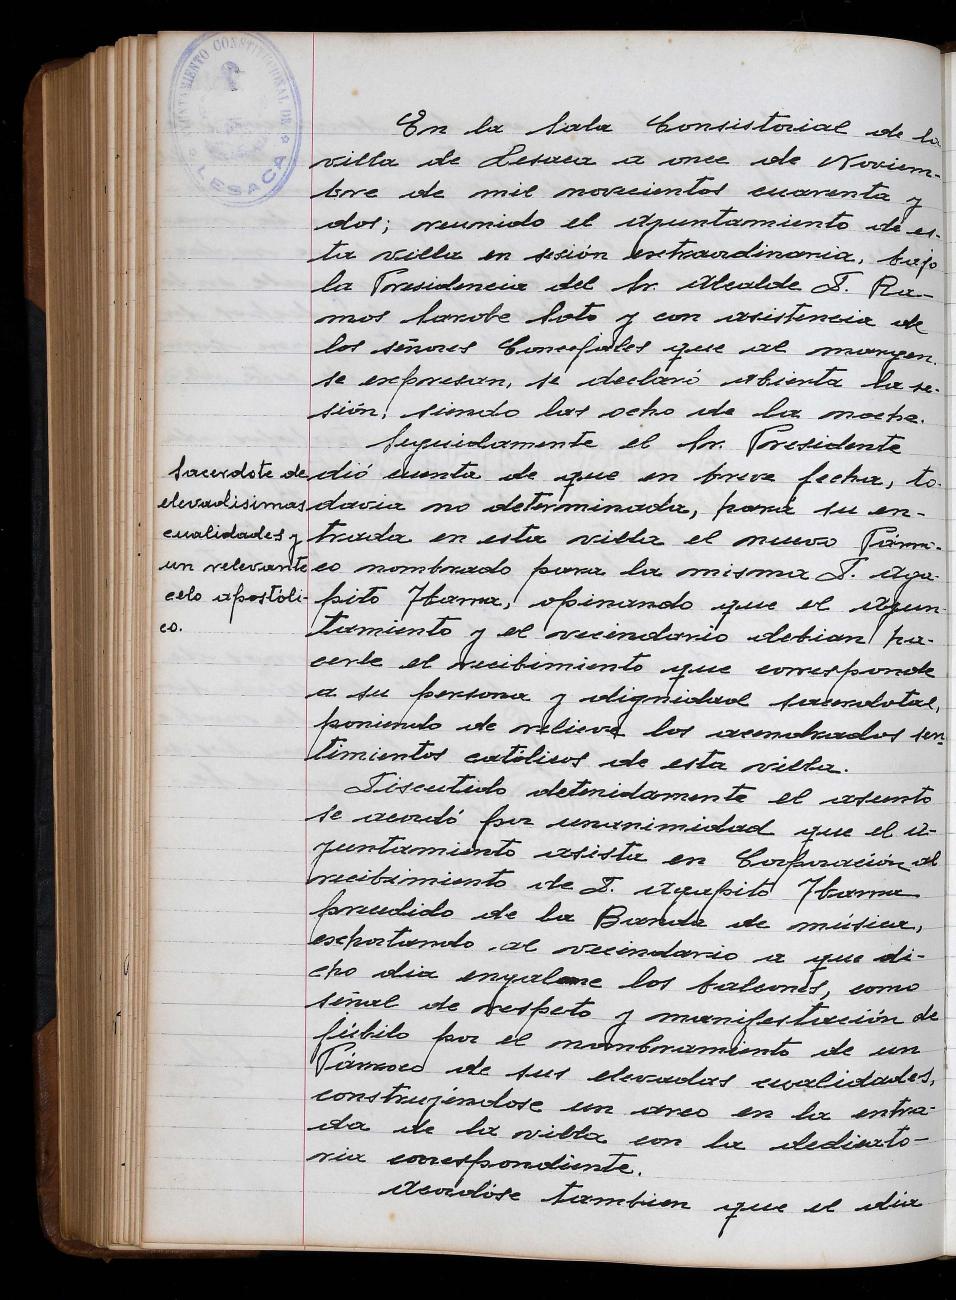 AYUNTAMIENTO CONSTITUCIONAL DE
LESACA
En la Sala Consistorial de la
villa de Lesaca a once de Noviem-
bre de mil novecientos cuarenta y
dos; reunido el Ayuntamiento de es-
ta villa en sesión extraordinaria, bajo
la Presidencia del Sr. Alcalde D. Ra-
mos Sarobe Soto y con asistencia de
los señores Concejales que al margen
se expresan, se declaró abierta la se-
sión, siendo las ocho de la noche.
Seguidamente el Sr. Presidente
dió cuenta de que en breve fecha, to-
davia no determinada, hará su en-
trada en esta villa el nuevo Párro-
co nombrado para la misma D. Aga-
pito Ibarra, opinando que el Ayun-
tamiento y el vecindario debian ha-
cerle el recibimiento que corresponde
a su persona y dignidad sacerdotal,
poniendo de relieve los acendrados sen-
timientos católicos de esta villa.
Discutido detenidamente el asunto
se acordó por unanimidad que el A-
yuntamiento asista en Corporación al
recibimiento de D. Agapito Ibarra
precedido de la Banda de música,
exhortando al vecindario a que di-
cho dia engalane los balcones, como
señal de respeto y manifestación de
júbilo por el nombramiento de un
Párroco de sus elevadas cualidades,
construyéndose un arco en la entra-
da de la villa con la dedicato-
ria correspondiente.
Acordóse tambien que el dia
Sacerdote de
elevadisimas
cualidades y
un relevante
celo apostóli-
co.